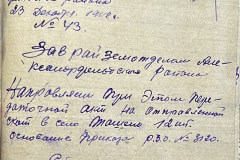 района
23 Декабр. 1942 г.
№ 43
Зав райземотделом Але-
ксандровского района
Направляем при этом пере-
даточной акт на отправленной
скот в село Ташено 12 шт.
основание Приказа РЗО. № 8120.